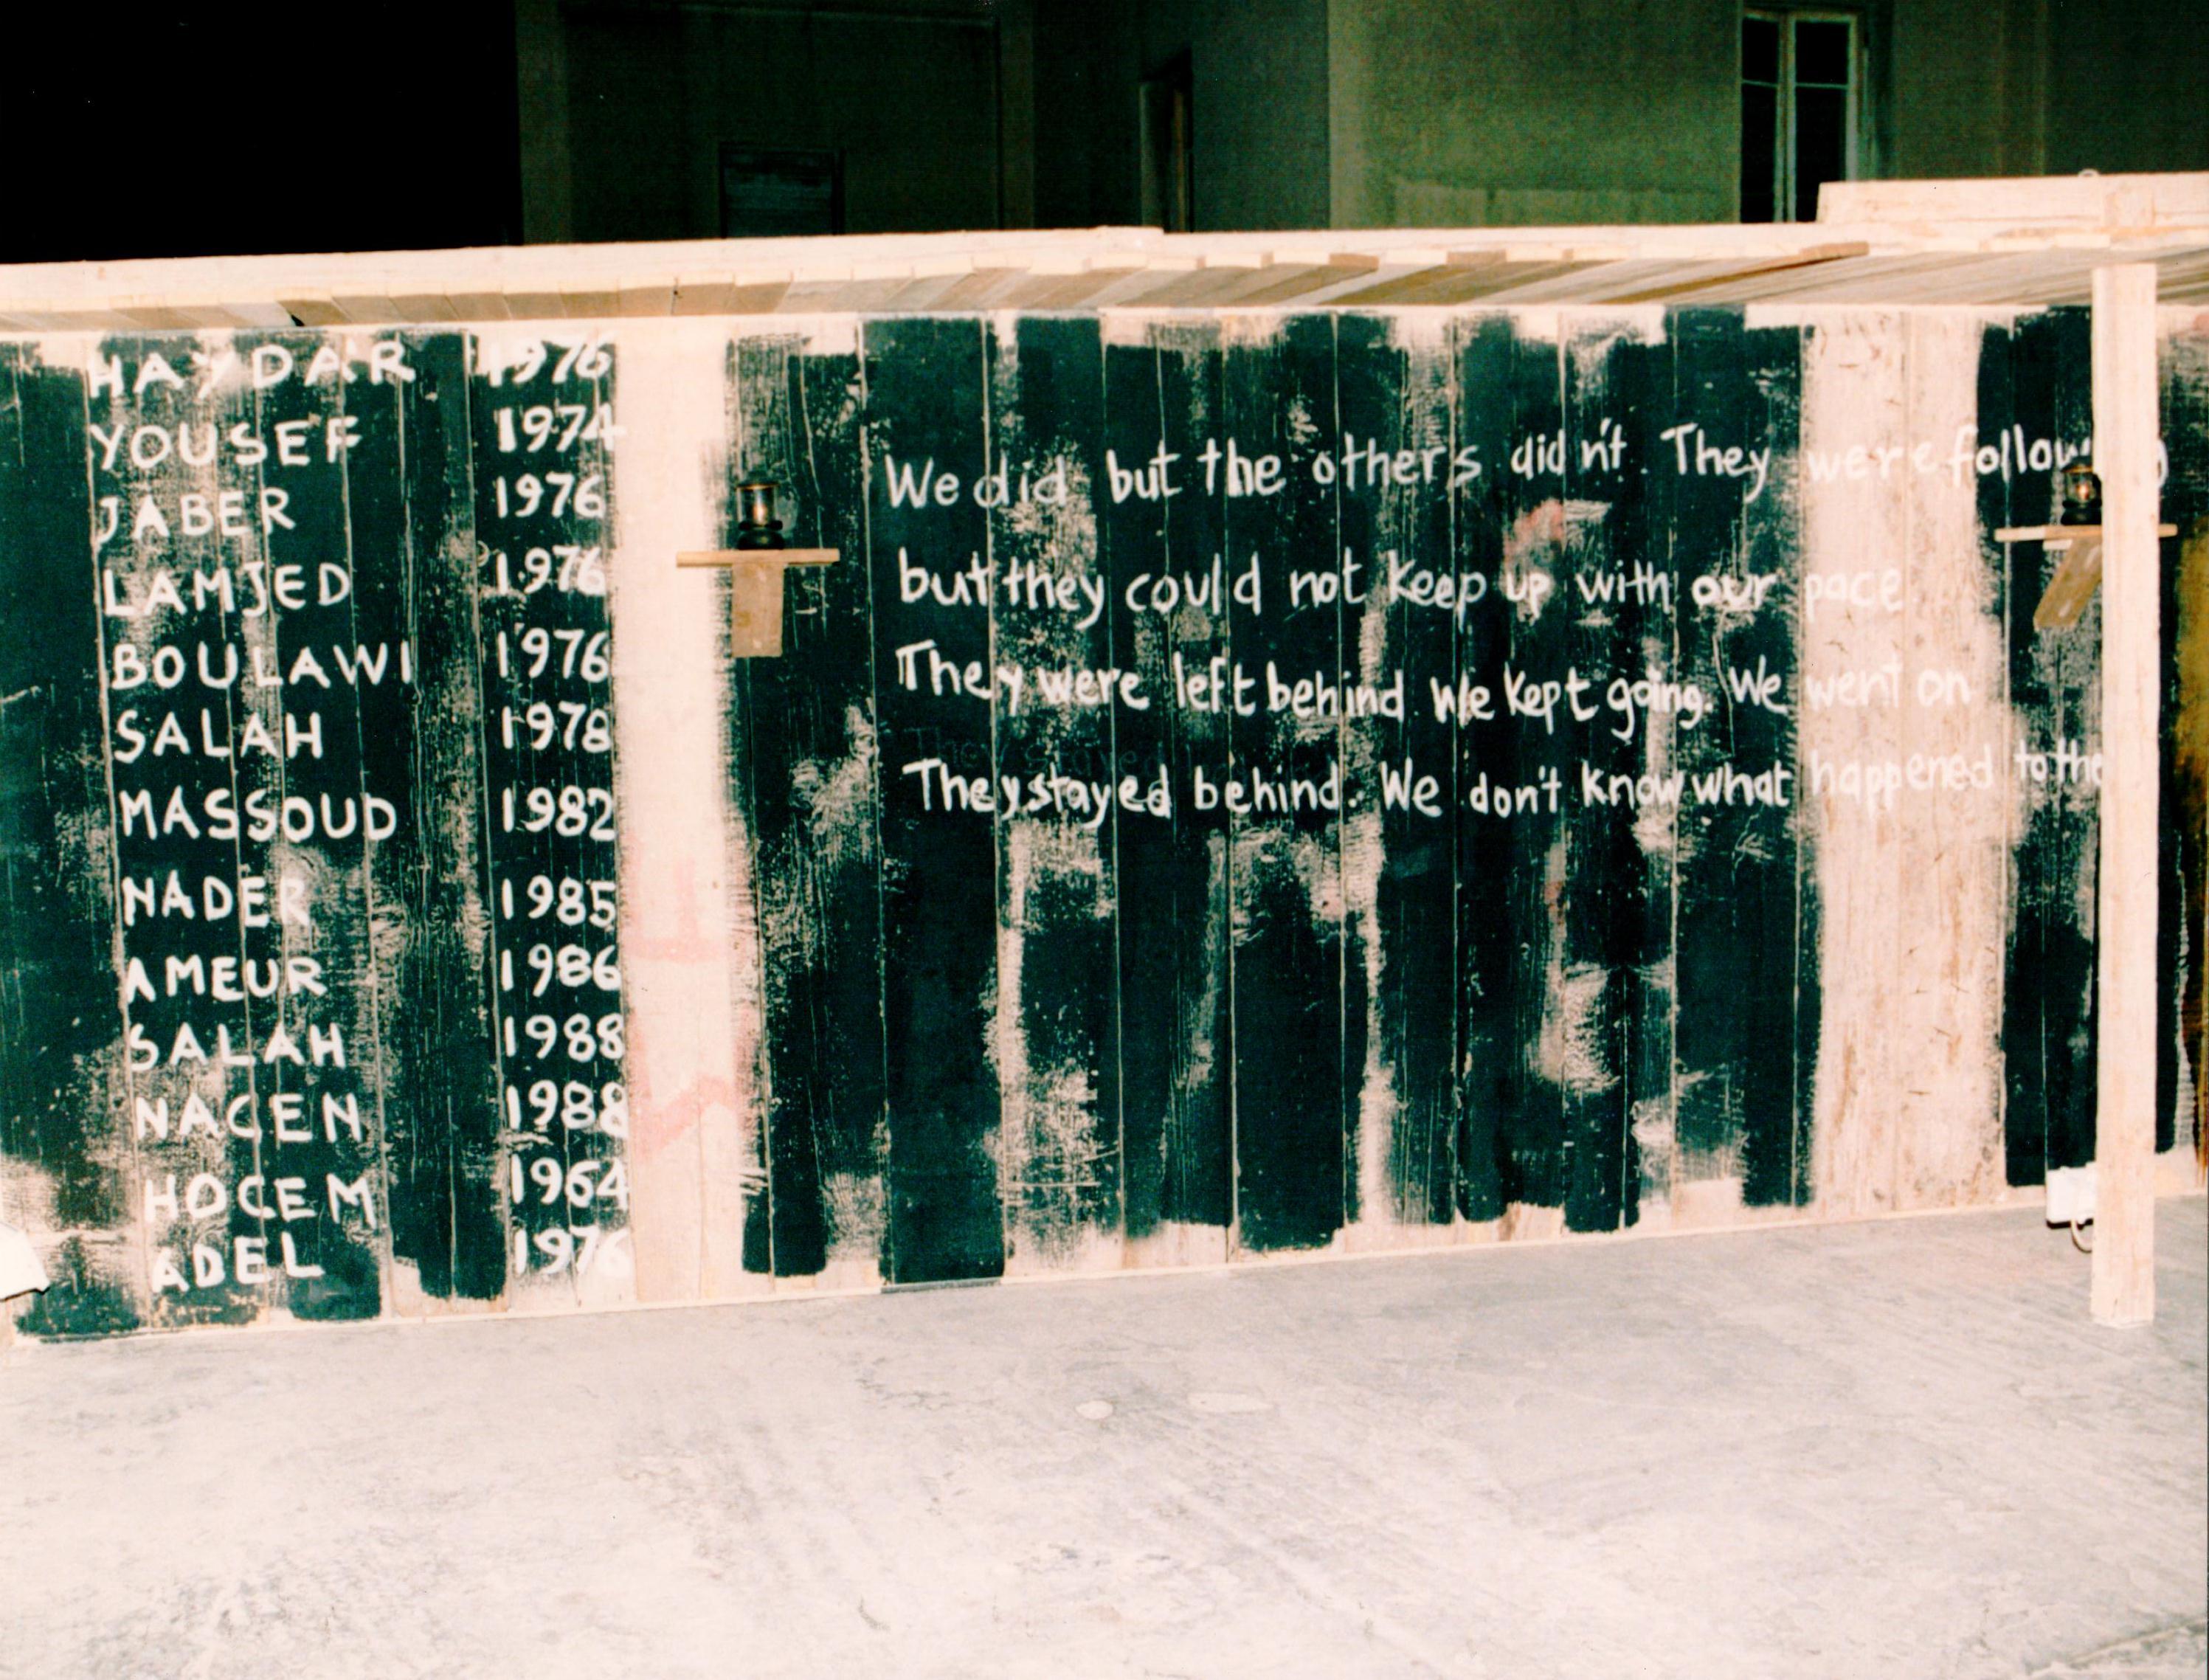 HAYDAR 1976
YOUSEF 1974
JABER 1976
LAMJED 1976
BOULAWI 1976
SALAH 1978
MASSOUD 1982
NADER 1985
AMEUR 1986
SALAH 1988
NACEN 1988
HOCEM 1964
ADEL 1976
We did but the others didn't. They were following
but they could not keep up with our pace
They were left behind. We kept going. We went on
They stayed behind. We don't know what happened to the